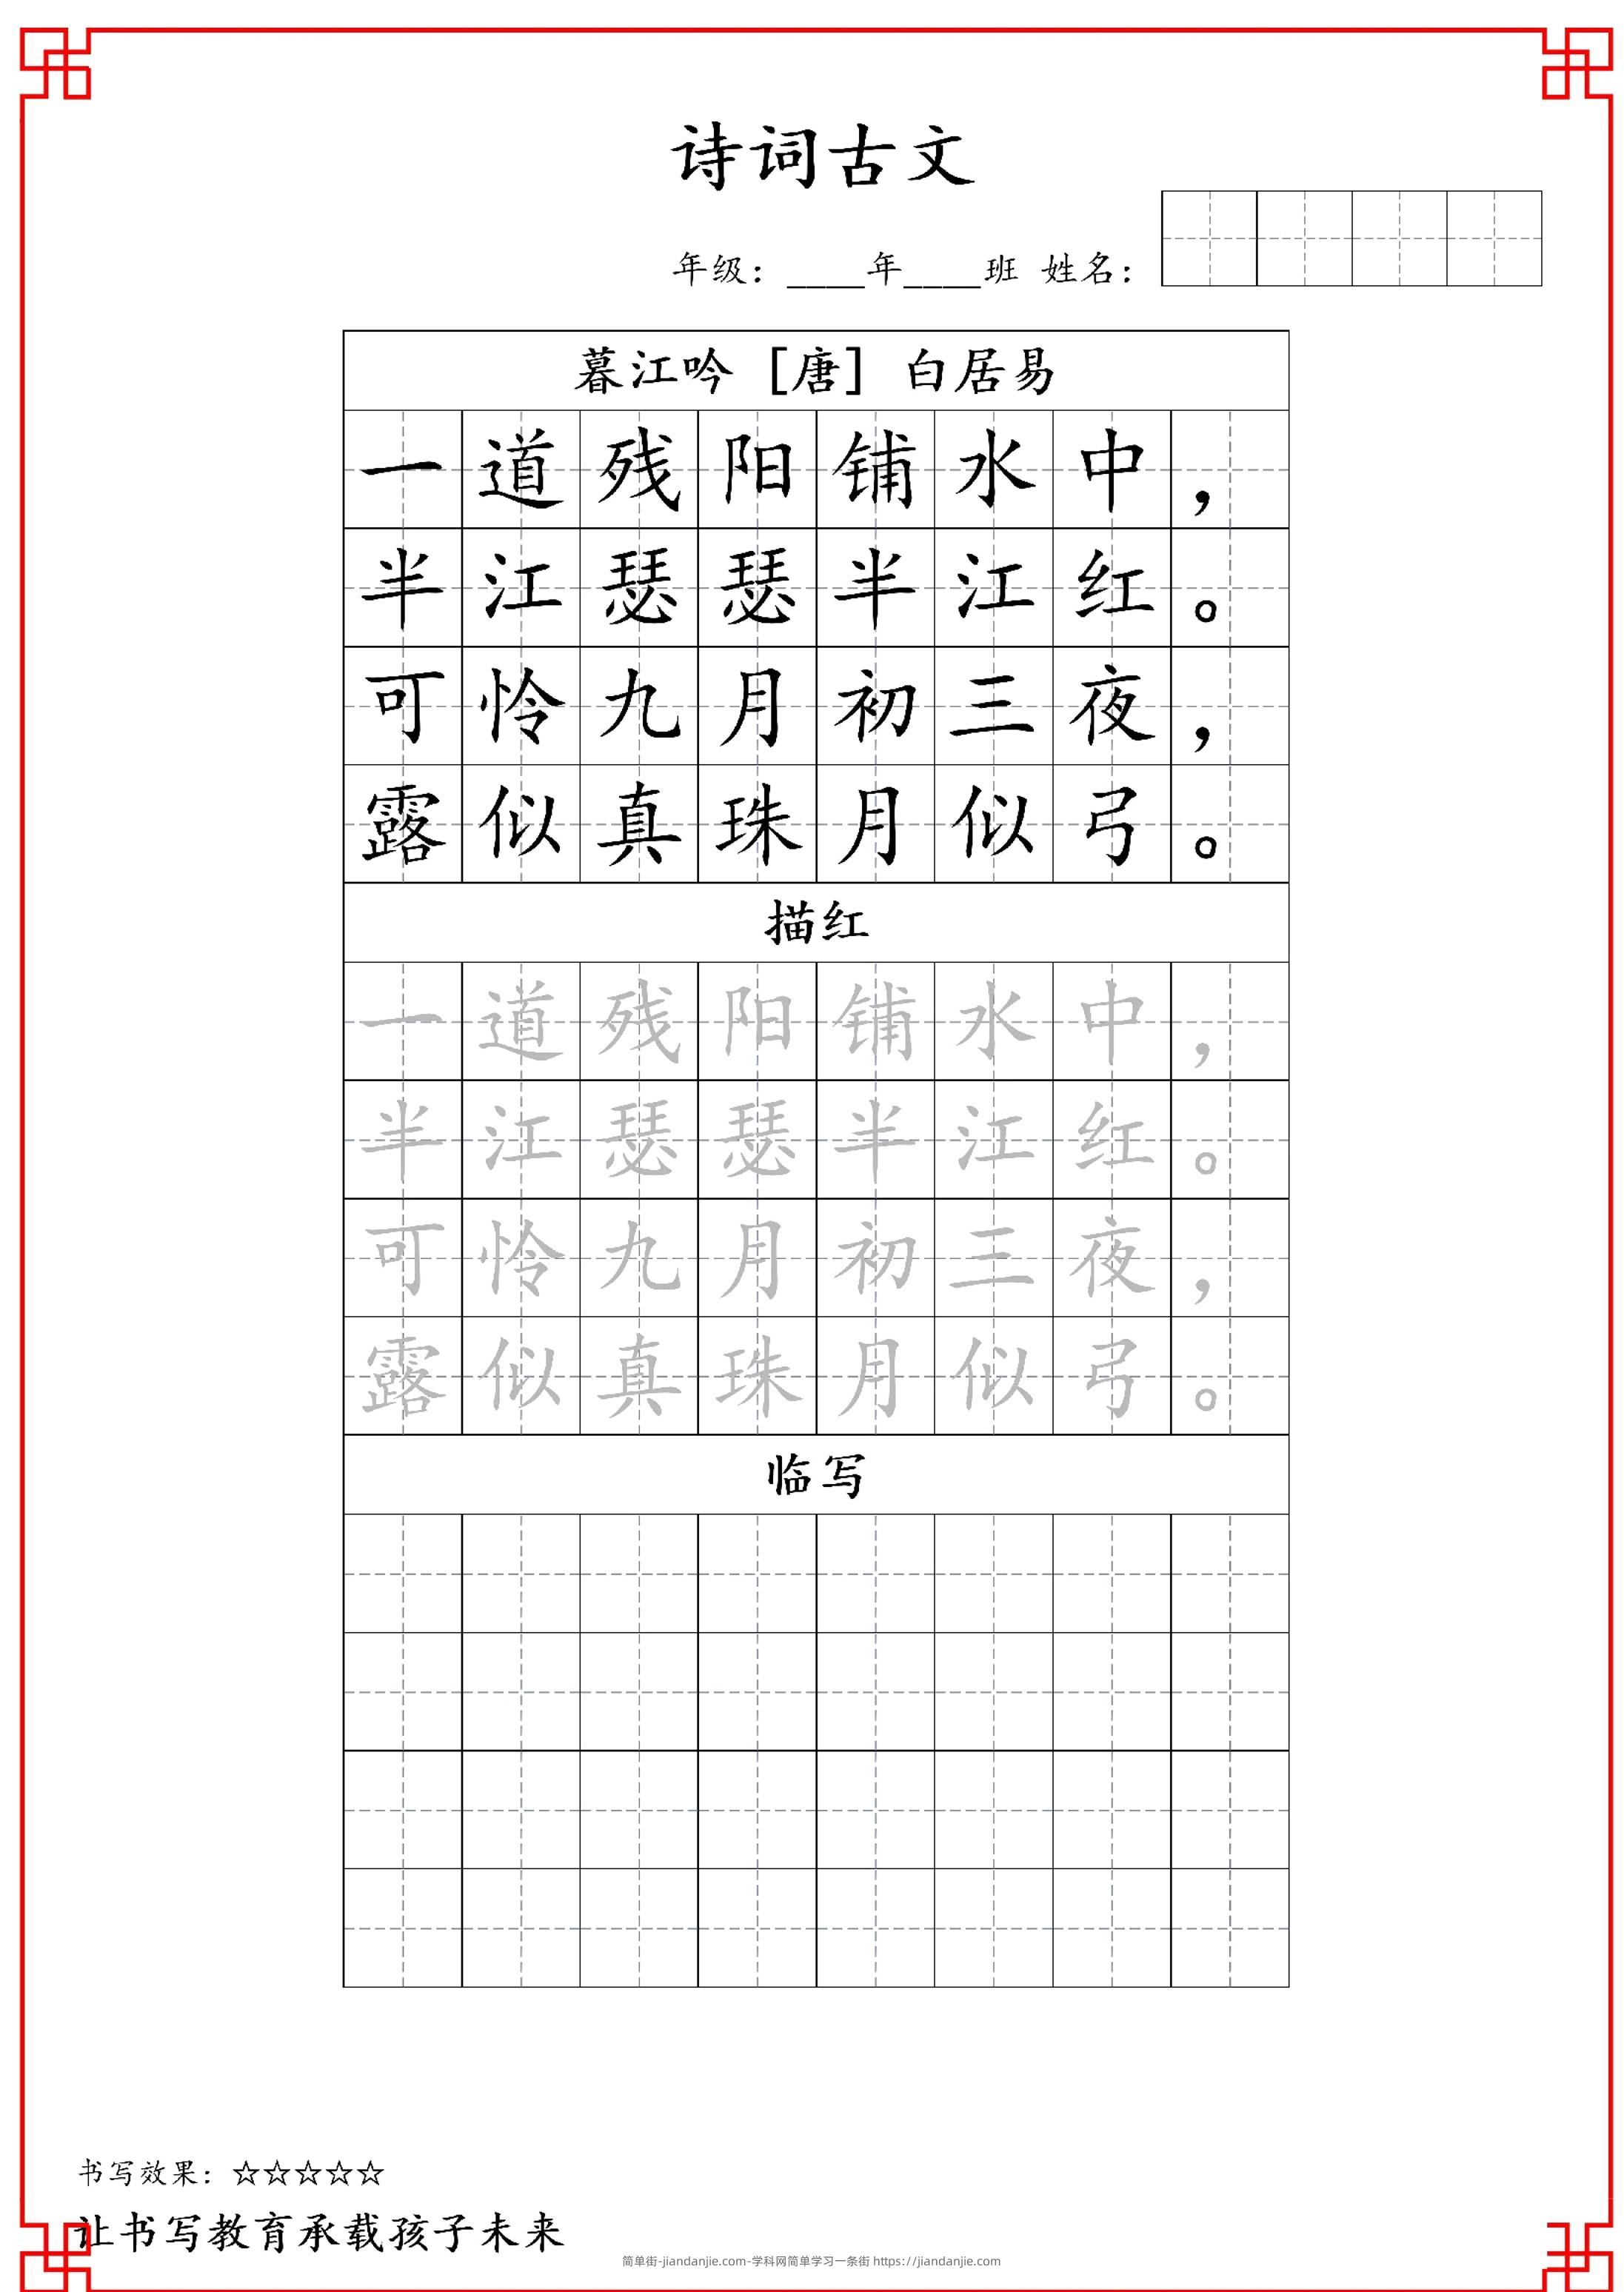 诗词古文
年级：____年____班 姓名：
暮江吟 [唐] 白居易
一道残阳铺水中，
半江瑟瑟半江红。
可怜九月初三夜，
露似真珠月似弓。
描红
一道残阳铺水中，
半江瑟瑟半江红。
可怜九月初三夜，
露似真珠月似弓。
临写
书写效果：☆☆☆☆☆
让书写教育承载孩子未来
简单街-jiandanjie.com-学科网简单学习一条街 https://jiandanjie.com